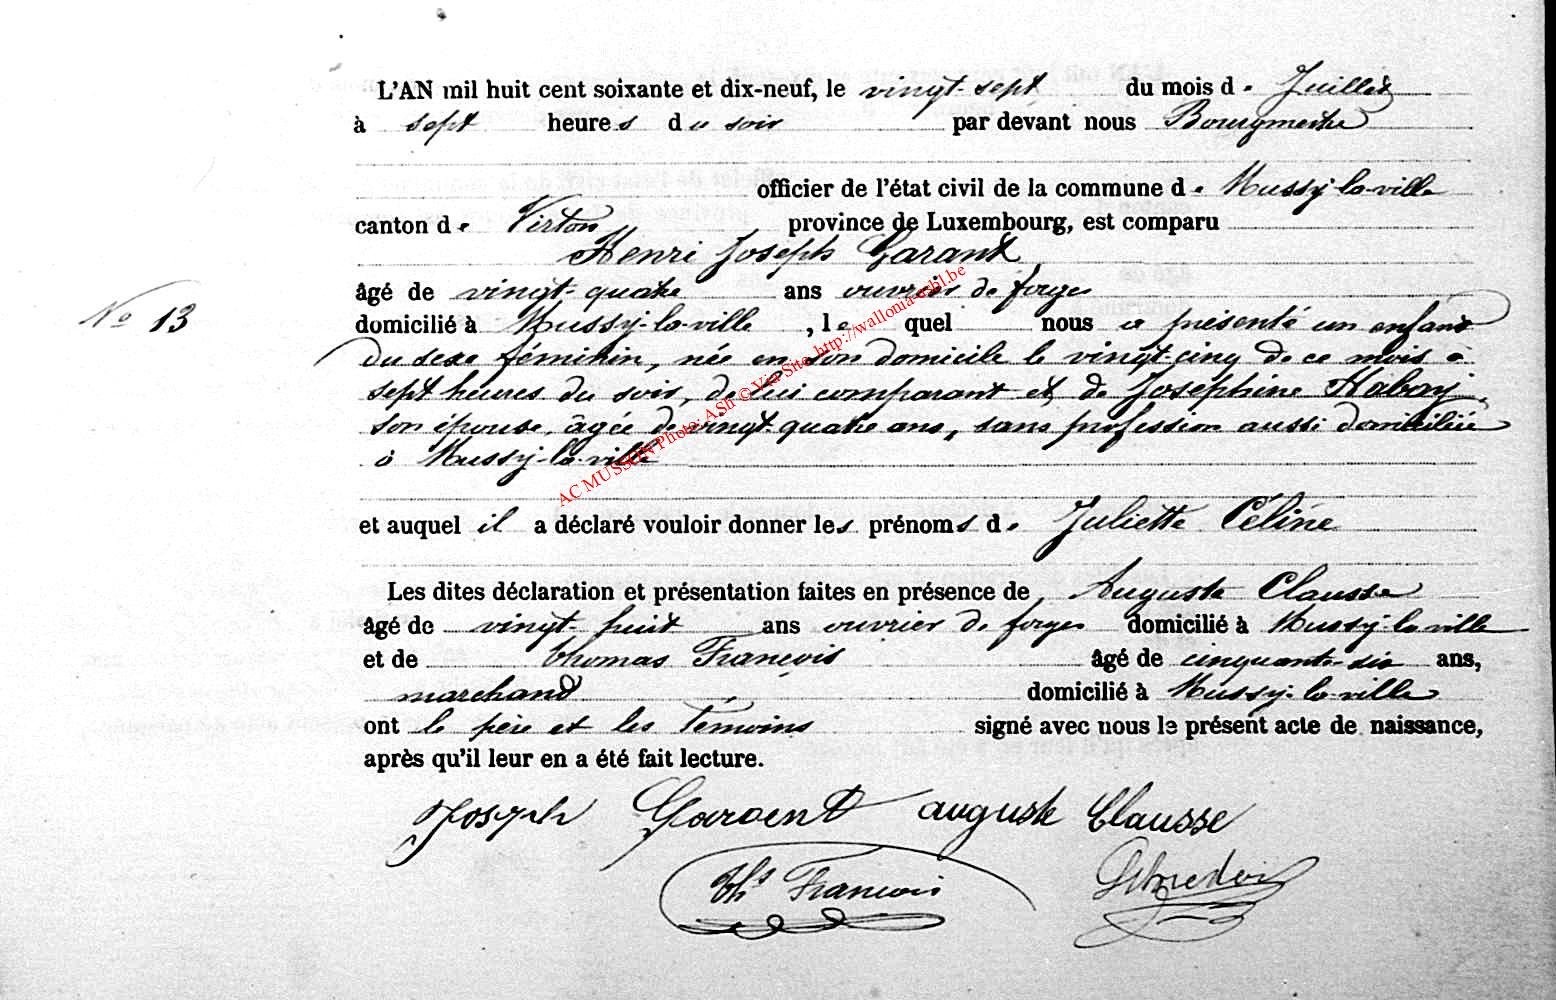 L'AN mil huit cent soixante et dix-neuf, le vingt-sept du mois de Juillet
à sept heures du soir par devant nous Bourgmestre
officier de l'état civil de la commune de Mussy-la-ville
canton de Virton province de Luxembourg, est comparu
Henri Joseph Garant
âgé de vingt-quatre ans ouvrier de forges
N° 13
domicilié à Mussy-la-ville, lequel nous a présenté un enfant
du sexe féminin, née en son domicile le vingt-cinq de ce mois à
sept heures du soir, de lui comparant et de Joséphine Habay
son épouse, âgée de vingt-quatre ans, sans profession aussi domiciliée
à Mussy-la-ville
AC MUSSON Photo: ASh © Via Site http://wallonia-asbl.be
et auquel il a déclaré vouloir donner les prénoms de Juliette Céline
Les dites déclaration et présentation faites en présence de Auguste Clausse
âgé de vingt-huit ans ouvrier de forges domicilié à Mussy-la-ville
et de Thomas François âgé de cinquante-six ans,
marchand domicilié à Mussy-la-ville
ont le père et les témoins signé avec nous le présent acte de naissance,
après qu'il leur en a été fait lecture.
Joseph Garant auguste Clausse
Ths François